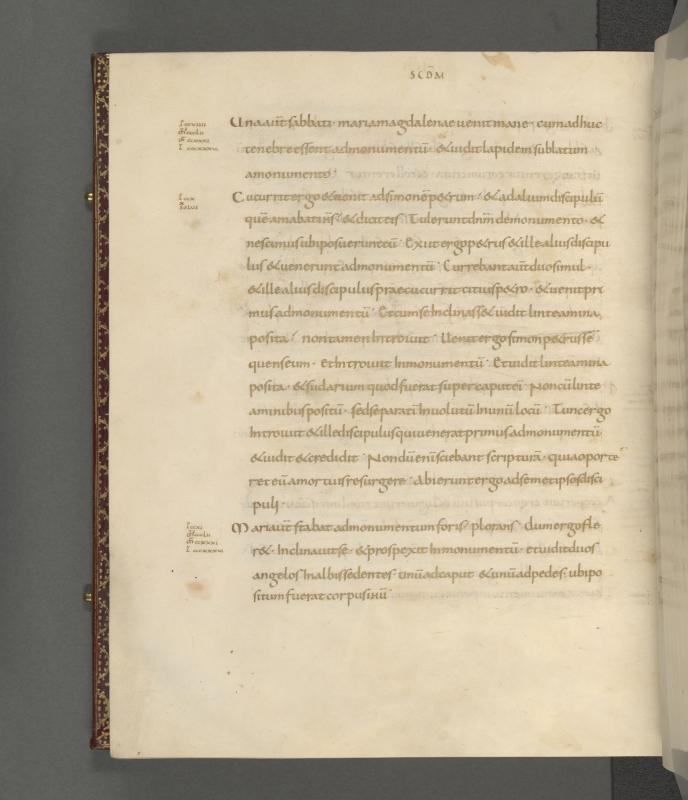 SCDM
Una aut̄ sabbati · maria magdalenae uenit mane · cum adhuc
tenebre essent ad monumentū · & uidit lapidem sublatum
a monumento ·
Cucurrit ergo & uenit ad simonē p&rum · & ad alium discipulū
quē amabat ih̄s · & dicit eis · Tulerunt dn̄m de monumento · &
nescimus ubi posuerunt eū · Exiit ergo p&rus & ille alius discipu
lus & uenerunt ad monumentū · Currebant aut̄ duo simul ·
& ille alius discipulus praecucurrit citius p&ro · & uenit pri
mus ad monumentū · Et cum se inclinass& uidit linteamina
posita · non tamen introiuit · Uenit ergo simon p&rus se
quens eum · et introiuit in monumentū · Et uidit linteamina
posita · & sudarium quod fuerat super caput eī · Non cū linte
aminibus positū · sed separatī inuolutū in unū locū · Tunc ergo
introiuit & ille discipulus qui uenerat primus ad monumentū
& uidit & credidit · Nondū enī sciebant scripturā · quia oporte
ret eū a mortuis resurgere · Abierunt ergo ad semetipsos disci
puli ·
Maria aut̄ stabat ad monumentum foris plorans · dum ergo fle
r& · inclinauit se · & prospexit in monumentū · et uidit duos
angelos in albis sedentes · unū ad caput & unū ad pedes · ubi po
situm fuerat corpus ihū